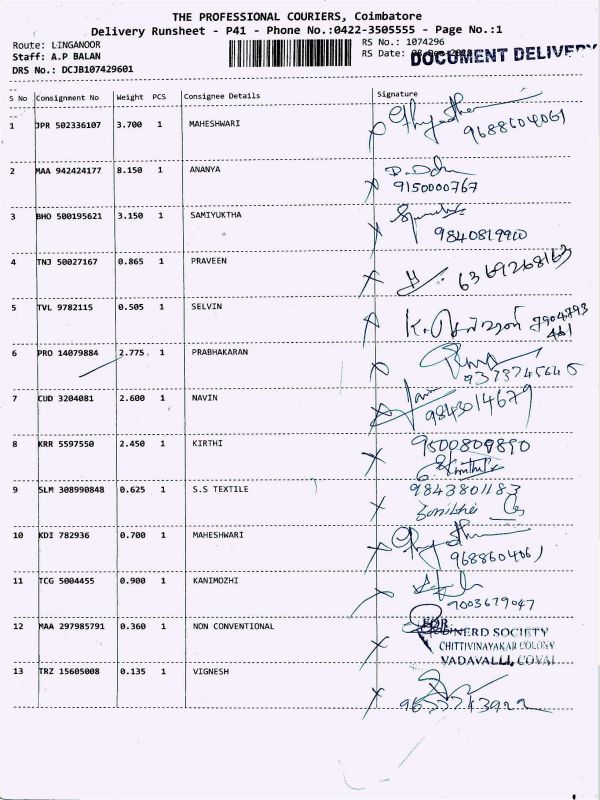 THE PROFESSIONAL COURIERS, Coimbatore
Delivery Runsheet - P41 - Phone No.:0422-3505555 - Page No.:1
Route: LINGANOOR RS No.: 1074296
Staff: A.P BALAN RS Date:
DOCUMENT DELIVERY
DRS No.: DCJB107429601
S No Consignment No Weight PCS Consignee Details Signature
1 JPR 502336107 3.700 1 MAHESHWARI
9688604061
2 MAA 942424177 8.150 1 ANANYA
9150000767
3 BHO 500195621 3.150 1 SAMIYUKTHA
9840819900
4 TNJ 50027167 0.865 1 PRAVEEN 6369268163
5 TVL 9782115 0.505 1 SELVIN 7904793
461
6 PRO 14079884 2.775 1 PRABHAKARAN
9373745645
7 CUD 3204081 2.600 1 NAVIN
9843014679
8 KRR 5597550 2.450 1 KIRTHI 9500809890
9 SLM 308990848 0.625 1 S.S TEXTILE 9843801183
10 KDI 782936 0.700 1 MAHESHWARI
9688604061
11 TCG 5004455 0.900 1 KANIMOZHI
9003679047
12 MAA 297985791 0.360 1 NON CONVENTIONAL FOR
NERD SOCIETY
CHITTIVINAYAKAR COLONY
VADAVALLI, COVAI
13 TRZ 15605008 0.135 1 VIGNESH